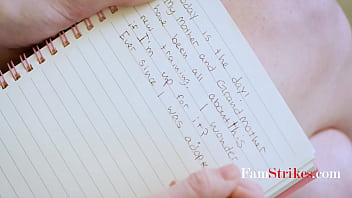 Today is the day!
My mother and Grandmother
have been all about this
new training. I wonder
if I'm up for it?
Ever since I was adop
FanStrikes.com